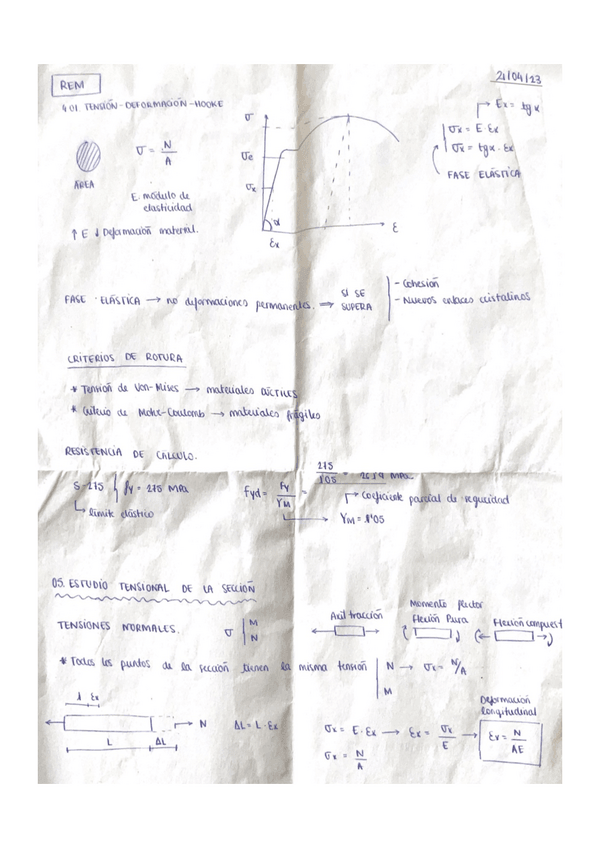 REM
21/04/23
401. TENSIÓN-DEFORMACIÓN-HOOKE
σ = N/A
ÁREA
E módulo de
elasticidad
↑ E ↓ Deformación material.
σ
σe
σx
α
εx
ε
Ex = tg α
σx = E · εx
σx = tgα · εx
FASE ELÁSTICA
FASE ELÁSTICA → no deformaciones permanentes. ⇒ SI SE SUPERA
- Cohesión
- Nuevos enlaces cristalinos
CRITERIOS DE ROTURA
* Tensión de Von-Mises → materiales DÚCTILES
* Criterio de Mohr-Coulomb → materiales frágiles
RESISTENCIA DE CALCULO.
S-275 } fy = 275 MPa
↳ límite elástico
Fyd = Fy/γM = 275/1'05 = 261'9 MPa
Coeficiente parcial de seguridad
γM = 1'05
05. ESTUDIO TENSIONAL DE LA SECCIÓN
TENSIONES NORMALES. σ | M N
Axil tracción
Momento flector
Flexión Pura
Flexión compuest
* Todos los puntos de la sección tienen la misma tensión | N → σx = N/A
M
1 εx
N
L ΔL
ΔL = L · εx
σx = E · εx → εx = σx/E → εx = N/AE
σx = N/A
Deformación
longitudinal